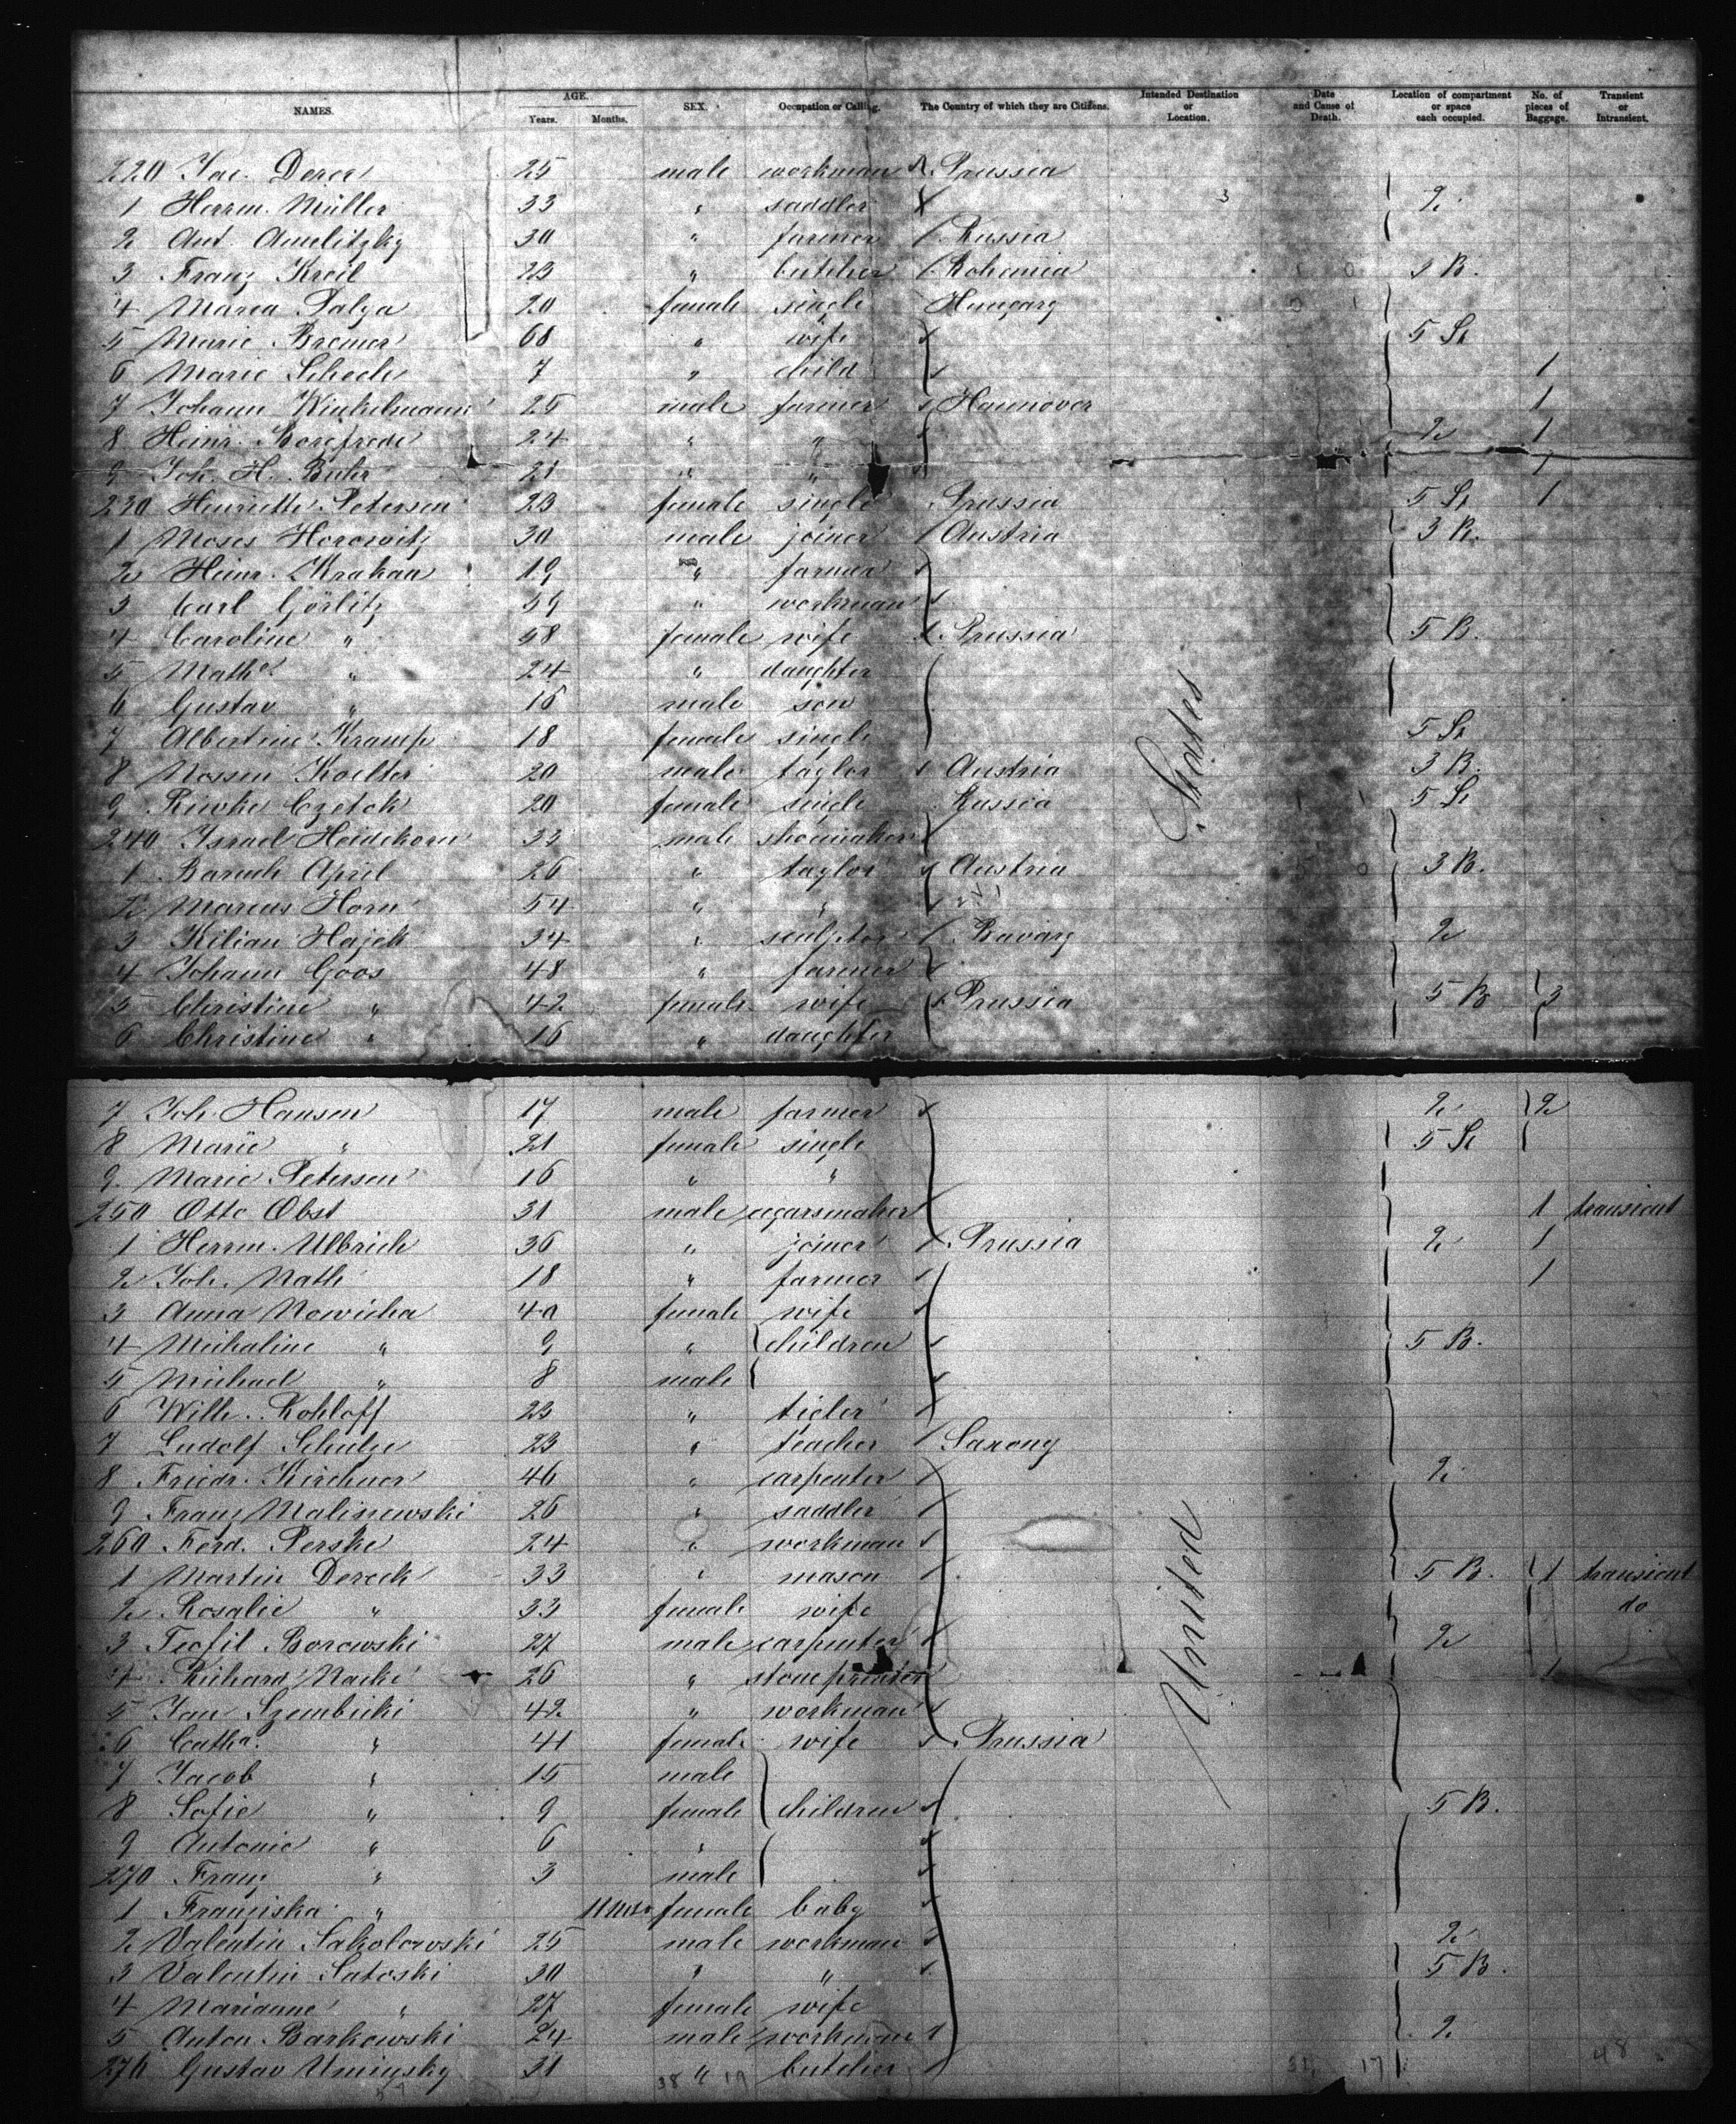 NAMES. AGE. Years. Months. SEX. Occupation or Calling. The Country of which they are Citizens. Intended Destination or Location. Date and Cause of Death. Location of compartment or space each occupied. No. of pieces of Baggage. Transient or Intransient.
220 Jac. Derer 25 male workman Prussia
1 Herrm. Müller 33 " saddler 2
2 Ant. Amelitzky 30 " farmer Russia
3 Franz Kreil 23 " butcher Bohemia 3 B.
4 Maria Palga 20 female single Hungary
5 Marie Bremer 68 " wife 5 St
6 Marie Scheele 7 " child 1
7 Johann Winkelmann 25 male farmer Hannover 1
8 Heinr. 24 " " 2 1
9 Joh. H. Buhr 21 " " 1
230 Henriette Petersen 23 female single Prussia 5 St 1
1 Moses Horowitz 30 male joiner Austria 3 B.
2 Heinr. Krakau 19 " farmer
3 Carl Görlitz 59 " workman
4 Caroline " 58 female wife Prussia 5 B.
5 Math. " 24 " daughter
6 Gustav " 16 male son
7 Albertine Kramp 18 female single 5 St
8 Nossen Koelter 20 male taylor Austria 3 B.
9 Riwke Czetok 20 female single Russia 5 St
240 Israel Heidekorn 33 male shoemaker
1 Baruch April 26 " taylor Austria 3 B.
2 Marcus Horn 54 " "
3 Kilian Hajek 34 " sculptor Bavary 2
4 Johann Goos 48 " farmer
5 Christine " 42 female wife Prussia 5 B 3
6 Christine " 16 " daughter
7 Joh. Hansen 17 male farmer 2 2
8 Marie " 21 female single 5 St
9 Marie Petersen 16 " "
250 Otto Obst 31 male cigarsmaker 1 transient
1 Herrm. Ulbrich 36 " joiner Prussia 2 1
2 Joh. Nath 18 " farmer 1
3 Anna Nowicka 40 female wife
4 Michaline " 9 " children 5 B.
5 Michael " 8 male
6 Wilh. Kohloff 23 " ticler
7 Ludolf Schulze 23 " teacher Saxony
8 Friedr. Kirchner 46 " carpenter 2
9 Franz Maliszewski 26 " saddler
260 Ferd. Perske 24 " workman
1 Martin Dereck 33 " mason 5 B. 1 transient
2 Rosalie " 33 female wife do
3 Teofil Borowski 27 male carpenter 2
4 Richard Nacke 26 " stoneprinter 1
5 Jan Szembicki 42 " workman
6 Catha. " 41 female wife Prussia
7 Jacob " 15 male
8 Sofie " 9 female children 5 B.
9 Antonie " 6 "
270 Franz " 3 male
1 Franziska " 11 mos. female baby
2 Valentin Sakolowski 25 male workman 2
3 Valentin Satoski 30 " " 5 B.
4 Marianne " 27 female wife
5 Anton Barkowski 24 male workman 2
276 Gustav Uminsky 31 " butcher
United States
38 19
17
48